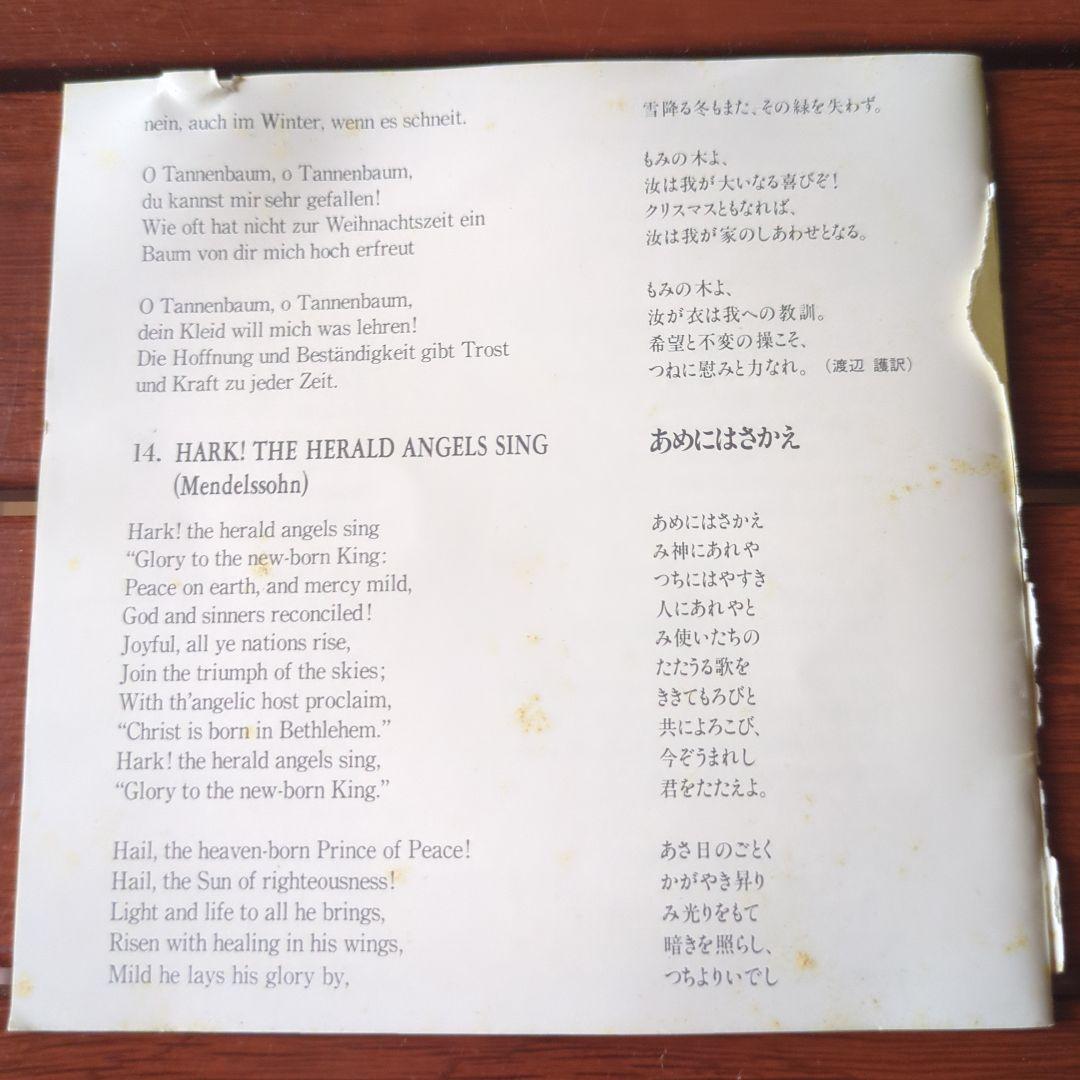 nein, auch im Winter, wenn es schneit.
O Tannenbaum, o Tannenbaum,
du kannst mir sehr gefallen!
Wie oft hat nicht zur Weihnachtszeit ein
Baum von dir mich hoch erfreut
O Tannenbaum, o Tannenbaum,
dein Kleid will mich was lehren!
Die Hoffnung und Beständigkeit gibt Trost
und Kraft zu jeder Zeit.
雪降る冬もまた、その緑を失わず。
もみの木よ、
汝は我が大いなる喜びぞ!
クリスマスともなれば、
汝は我が家のしあわせとなる。
もみの木よ、
汝が衣は我への教訓。
希望と不変の操こそ、
つねに慰みと力なれ。(渡辺 護訳)
14. HARK! THE HERALD ANGELS SING
(Mendelssohn)
あめにはさかえ
Hark! the herald angels sing
“Glory to the new-born King:
Peace on earth, and mercy mild,
God and sinners reconciled!
Joyful, all ye nations rise,
Join the triumph of the skies;
With th'angelic host proclaim,
“Christ is born in Bethlehem.”
Hark! the herald angels sing,
“Glory to the new-born King.”
Hail, the heaven-born Prince of Peace!
Hail, the Sun of righteousness!
Light and life to all he brings,
Risen with healing in his wings,
Mild he lays his glory by,
あめにはさかえ
み神にあれや
つちにはやすき
人にあれやと
み使いたちの
たたうる歌を
ききてもろびと
共によろこび、
今ぞうまれし
君をたたえよ。
あさ日のごとく
かがやき昇り
み光りをもて
暗きを照らし、
つちよりいでし